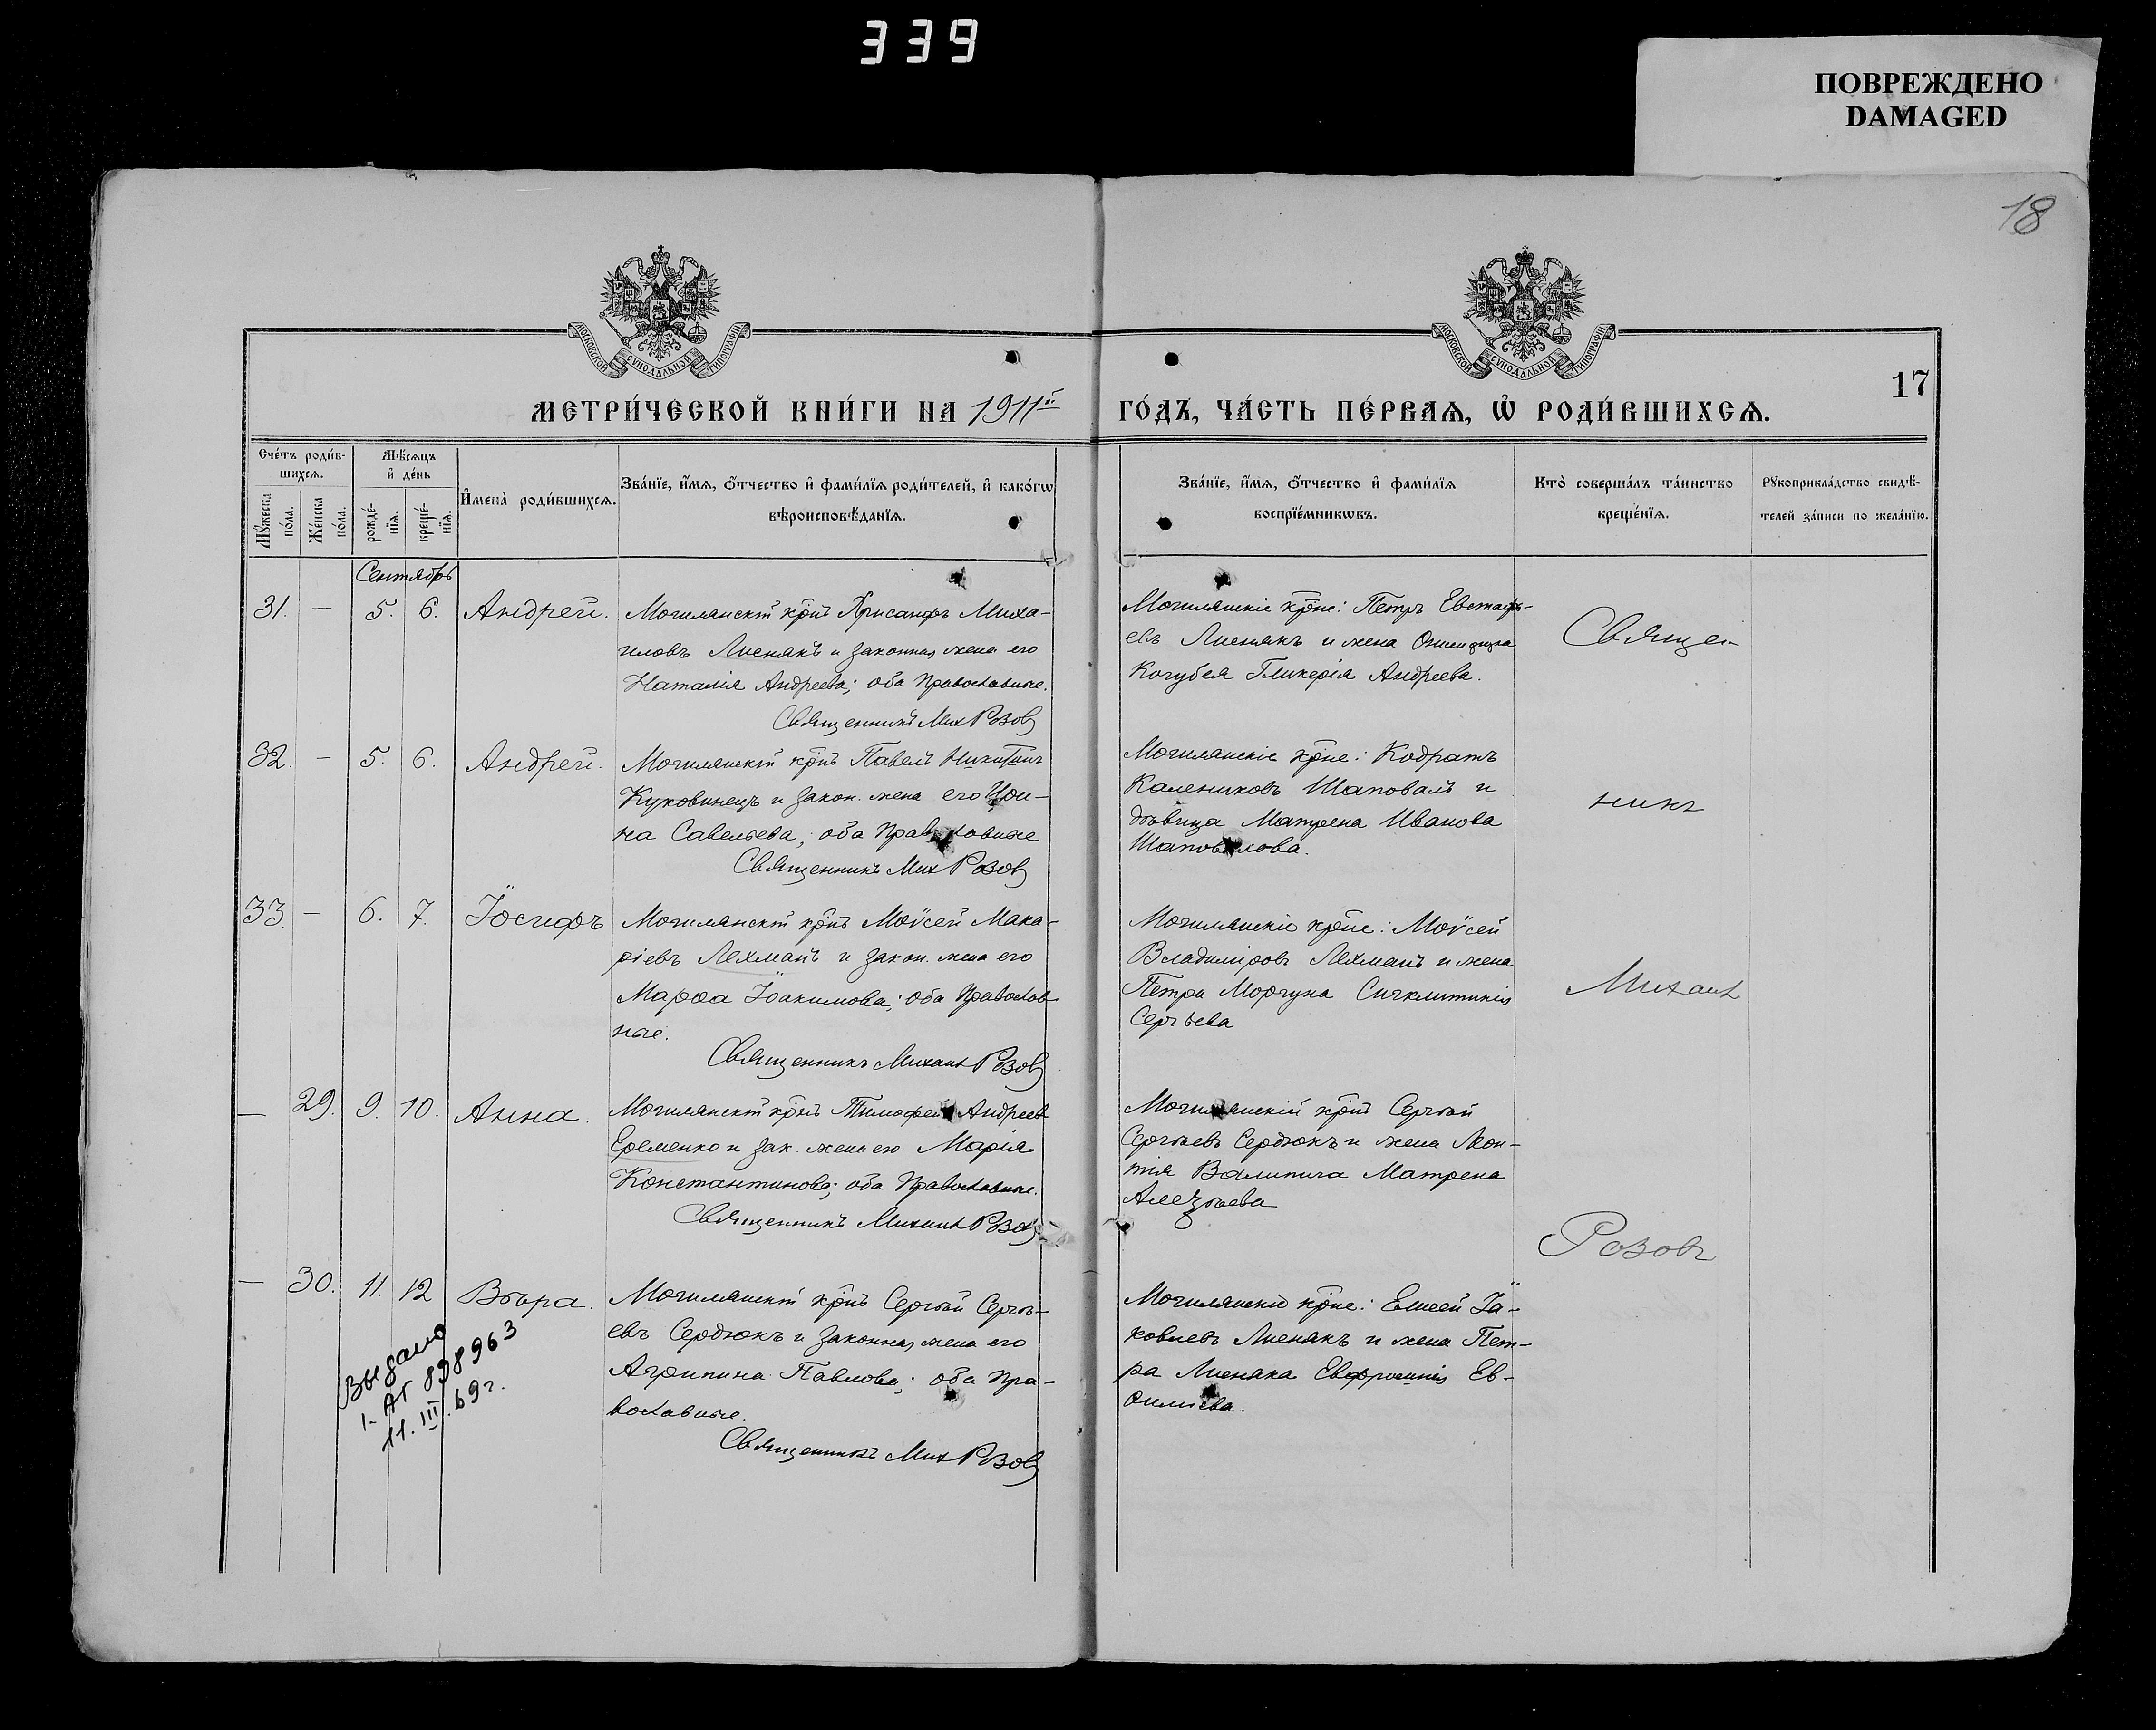 339
ПОВРЕЖДЕНО
DAMAGED
18
МОСКОВСКОЙ СѴНОДАЛЬНОЙ ТИПОГРАФІИ
МОСКОВСКОЙ СѴНОДАЛЬНОЙ ТИПОГРАФІИ
17
МЕТРИ́ЧЕСКОЙ КНИ́ГИ НА 1911й ГО́ДЪ, ЧА́СТЬ ПЕ́РВАѦ, Ѡ҆ РОДИ́ВШИХСѦ.
Сче́тъ роди́в-
шихсѧ.
Мꙋ́жеска
по́ла.
Же́нска
по́ла.
Мѣ́сѧцъ
и҆ де́нь
рожде́-
нїѧ.
креще́-
нїѧ.
И҆мена̀ роди́вшихсѧ.
Зва́нїе, и҆́мѧ, ѻ҆́тчество и҆ фами́лїѧ роди́телей, и҆ како́гѡ
вѣроисповѣ́данїѧ.
Зва́нїе, и҆́мѧ, ѻ҆́тчество и҆ фами́лїѧ
воспрїе́мникѡвъ.
Кто̀ соверша́лъ та́инство
креще́нїѧ.
Рꙋкоприкла́дство свидѣ́-
телей за́писи по жела́нїю.
Сентябрь
31. — 5. 6. Андрей.
Могилянскій крнъ Хрисанфъ Миха-
иловъ Лиснякъ и законная жена его
Наталія Андреева; оба Православные.
Священникъ Мих Розовъ
Могилянскіе крне: Петръ Евстафь-
евъ Лиснякъ и жена
Кочубея Гликерія Андреева.
32. — 5. 6. Андрей.
Могилянскій крнъ Павелъ Никитинъ
Куковинецъ и закон. жена его Ири-
на Савельева; оба Православные
Священникъ Мих Розовъ
Могилянскіе крне: Кодратъ
Калениковъ Шаповалъ и
дѣвица Матрена Иванова
Шаповалова.
33. — 6. 7. Іосифъ
Могилянскій крнъ Моѵсей Мака-
ріевъ Лехманъ и закон. жена его
Марѳа Іоакимова; оба Православ-
ные.
Священникъ Михаилъ Розовъ
Могилянскіе крне: Моѵсей
Владиміровъ Лехманъ и жена
Петра Моргуна Сигклитикія
Сергѣева
— 29. 9. 10. Анна.
Могилянскій крнъ Тимофей Андреев
Еременко и зак. жена его Марія
Константинова; оба Православные.
Священникъ Михаилъ Розовъ
Могилянскій крнъ Сергѣй
Сергѣевъ Сердюкъ и жена Леон-
тія Матрена
Алеѯѣева
— 30. 11. 12 Вѣра.
Могилянскій крнъ Сергѣй Сергѣ-
евъ Сердюкъ и законная жена его
Агрипина Павлова; оба Пра-
вославные.
Священникъ Мих Розовъ
Могилянскіе крне: Елисей Іа-
ковлевъ Лиснякъ и жена Пет-
ра Лисняка Евфросинія Ев-
ѳиміева.
Священ-
никъ
Михаилъ
Розовъ
Выдано
I-АГ 898963
11.III.69г.